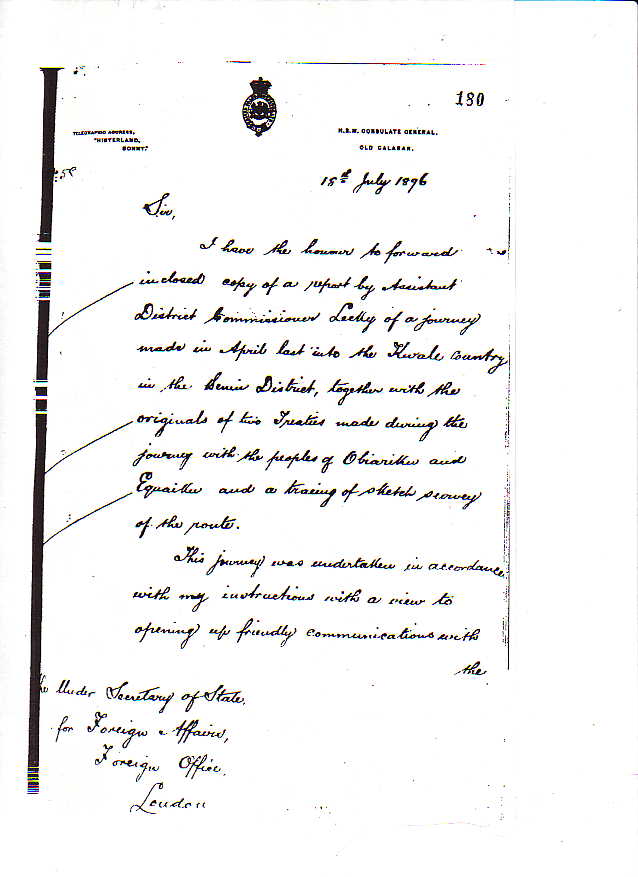 180
TELEGRAPHIC ADDRESS,
"HINTERLAND,
BONNY."
H.B.M. CONSULATE GENERAL,
OLD CALABAR.
18th July 1896
Sir,
I have the honour to forward
inclosed copy of a report by Assistant
District Commissioner Lecky of a journey
made in April last into the Kwale Country
in the Benin District, together with the
originals of two Treaties made during the
journey with the peoples of Obiariku and
Equaiku and a tracing of sketch survey
of the route.
This journey was undertaken in accordance
with my instructions with a view to
opening up friendly communications with
the
Under Secretary of State,
for Foreign Affairs,
Foreign Office,
London